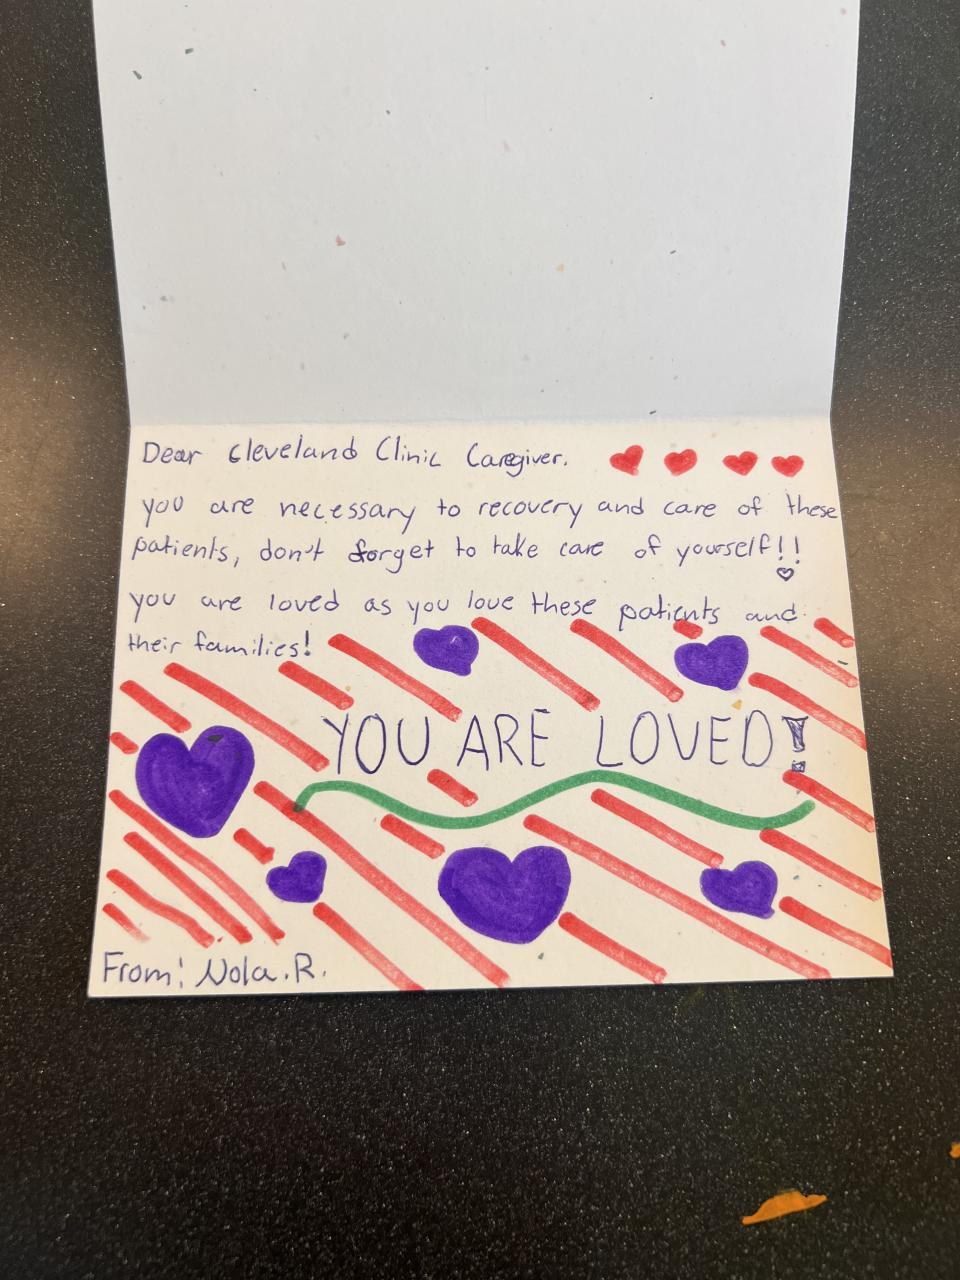 Dear Cleveland Clinic Caregiver.
you are necessary to recovery and care of these
patients, don't forget to take care of yourself!!
you are loved as you love these patients and
their families!
YOU ARE LOVED!
From: Nola.R.